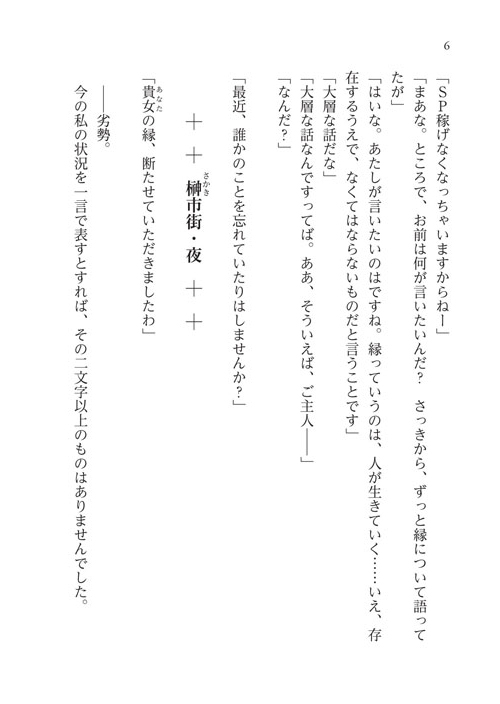 6
「ＳＰ稼げなくなっちゃいますからねー」
「まあな。ところで、お前は何が言いたいんだ？　さっきから、ずっと縁について語って
たが」
「はいな。あたしが言いたいのはですね。縁っていうのは、人が生きていく……いえ、存
在するうえで、なくてはならないものだと言うことです」
「大層な話だな」
「大層な話なんですってば。ああ、そういえば、ご主人――」
「なんだ？」
「最近、誰かのことを忘れていたりはしませんか？」
＋　＋　榊市街・夜　＋　＋
さかき
「貴女の縁、断たせていただきましたわ」
あなた
――劣勢。
今の私の状況を一言で表すとすれば、その二文字以上のものはありませんでした。